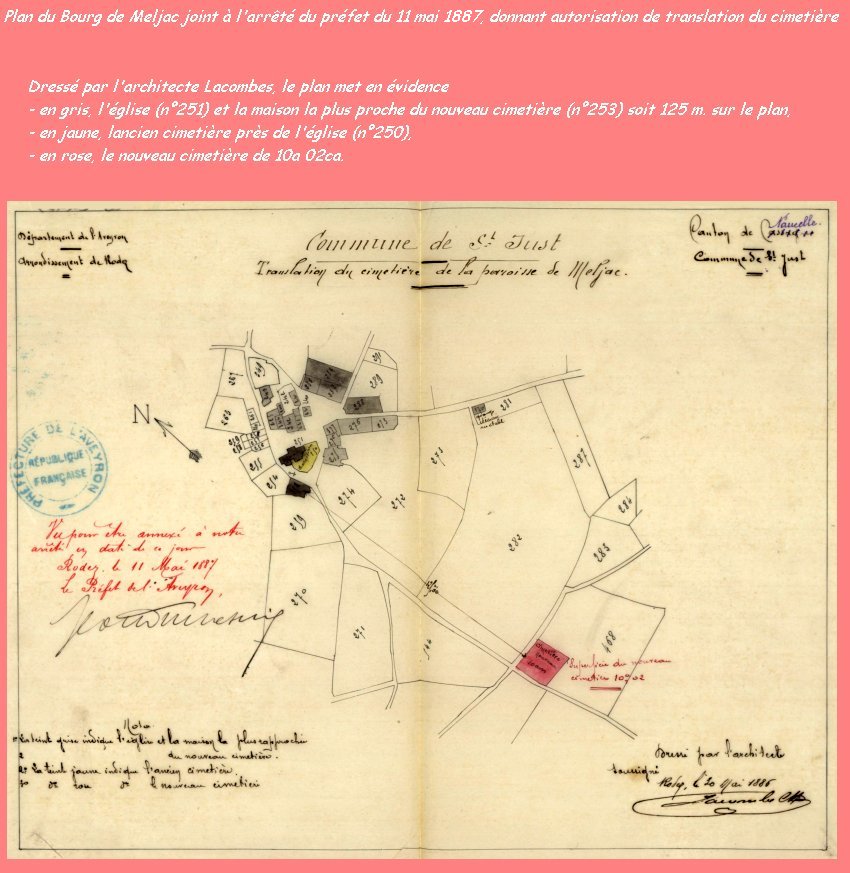 Plan du Bourg de Meljac joint à l'arrêté du préfet du 11 mai 1887, donnant autorisation de translation du cimetière
Dressé par l'architecte Lacombes, le plan met en évidence
- en gris, l'église (n°251) et la maison la plus proche du nouveau cimetière (n°253) soit 125 m. sur le plan,
- en jaune, lancien cimetière près de l'église (n°250),
- en rose, le nouveau cimetière de 10a 02ca.
Département de l'Aveyron
Arrondissement de Rodez
Commune de St Just
Translation du cimetière de la parroisse de Meljac.
Canton de Naucelle
Commune de St Just
N
267
269
263
291
289
255
254
251
276
281
273
274
272
259
282
287
284
283
270
271
144
468
PRÉFECTURE DE L'AVEYRON
RÉPUBLIQUE
FRANÇAISE
Vu pour être annexé à notre
arrêté en date de ce jour
Rodez, le 11 Mai 1887
Le Préfet de l'Aveyron,
Superficie du nouveau
cimetière 10a 02
Nota
1° La teint grise indique l'église et la maison la plus rapprochée
du nouveau cimetière.
2° La teint jaune indique l'ancien cimetière.
3° de rose de le nouveau cimetière
Dressé par l'architecte
soussigné
Rodez, le 20 Mai 1886
Lacombes